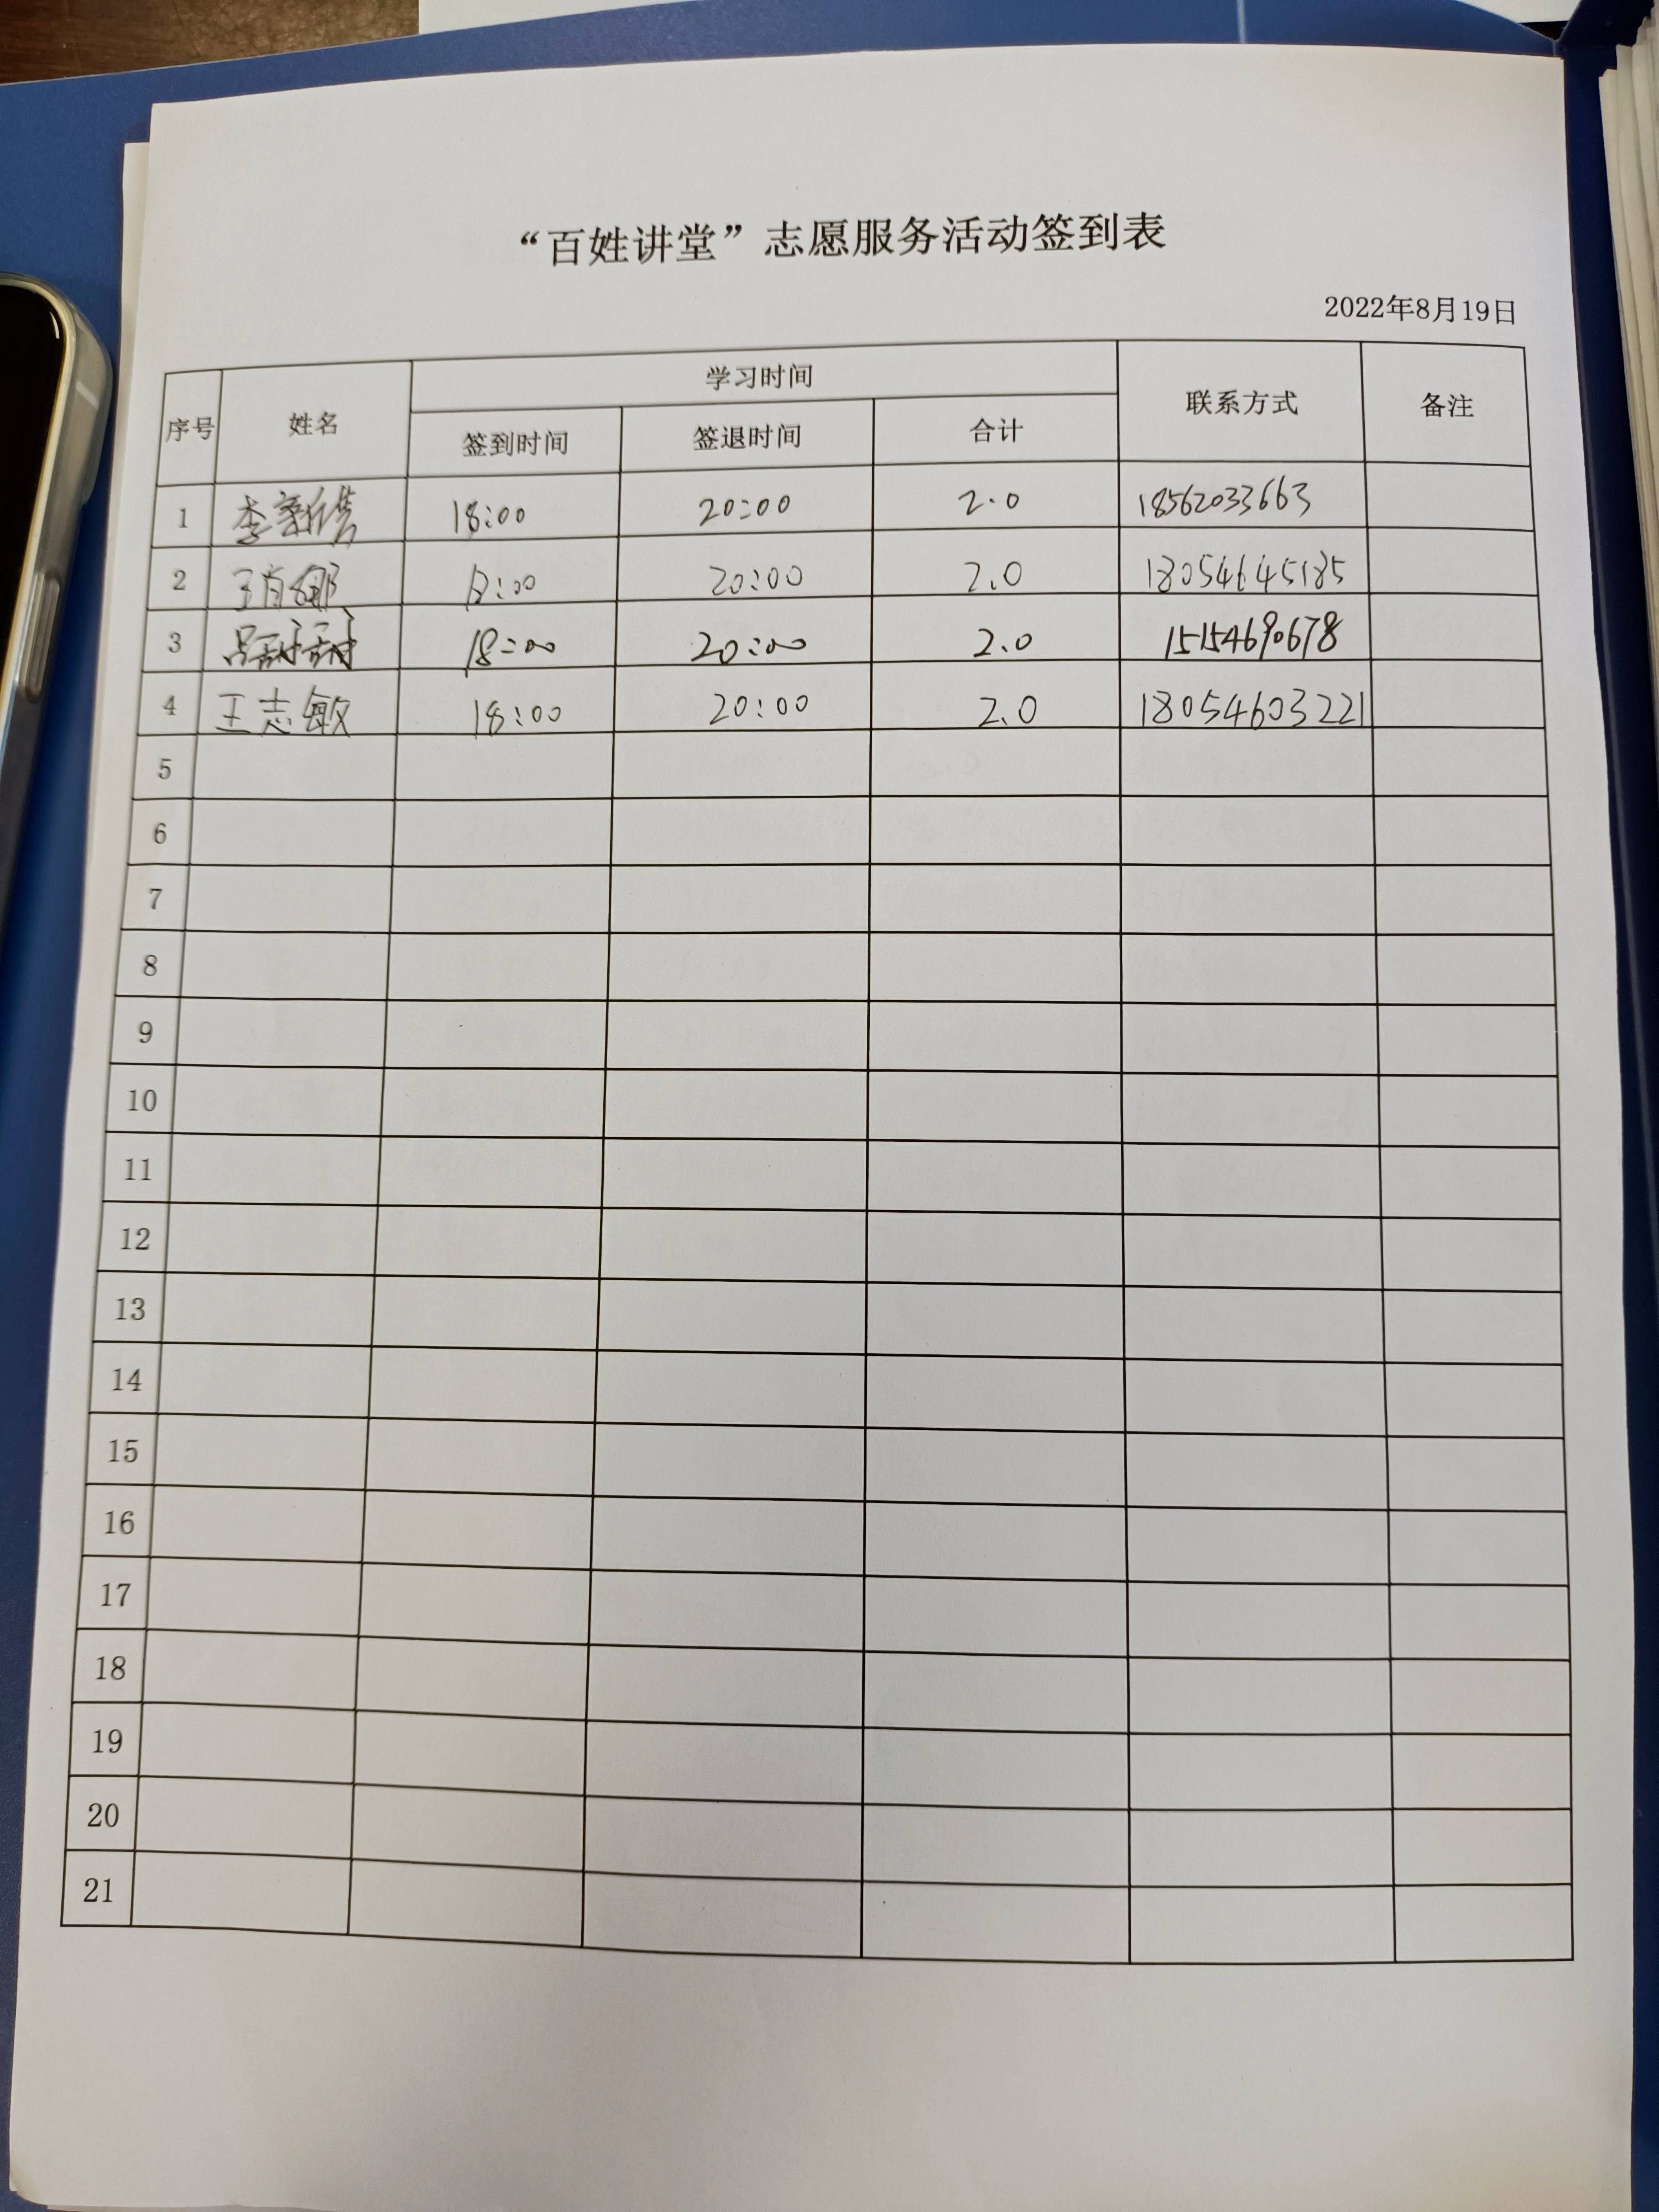 “百姓讲堂”志愿服务活动签到表
2022年8月19日
序号 姓名 学习时间 联系方式 备注
签到时间 签退时间 合计
1 李 18:00 20:00 2.0 18562033663
2 王肖娜 18:00 20:00 2.0 18054645185
3 吕甜甜 18:00 20:00 2.0 15154690678
4 王志敏 18:00 20:00 2.0 18054603221
5
6
7
8
9
10
11
12
13
14
15
16
17
18
19
20
21